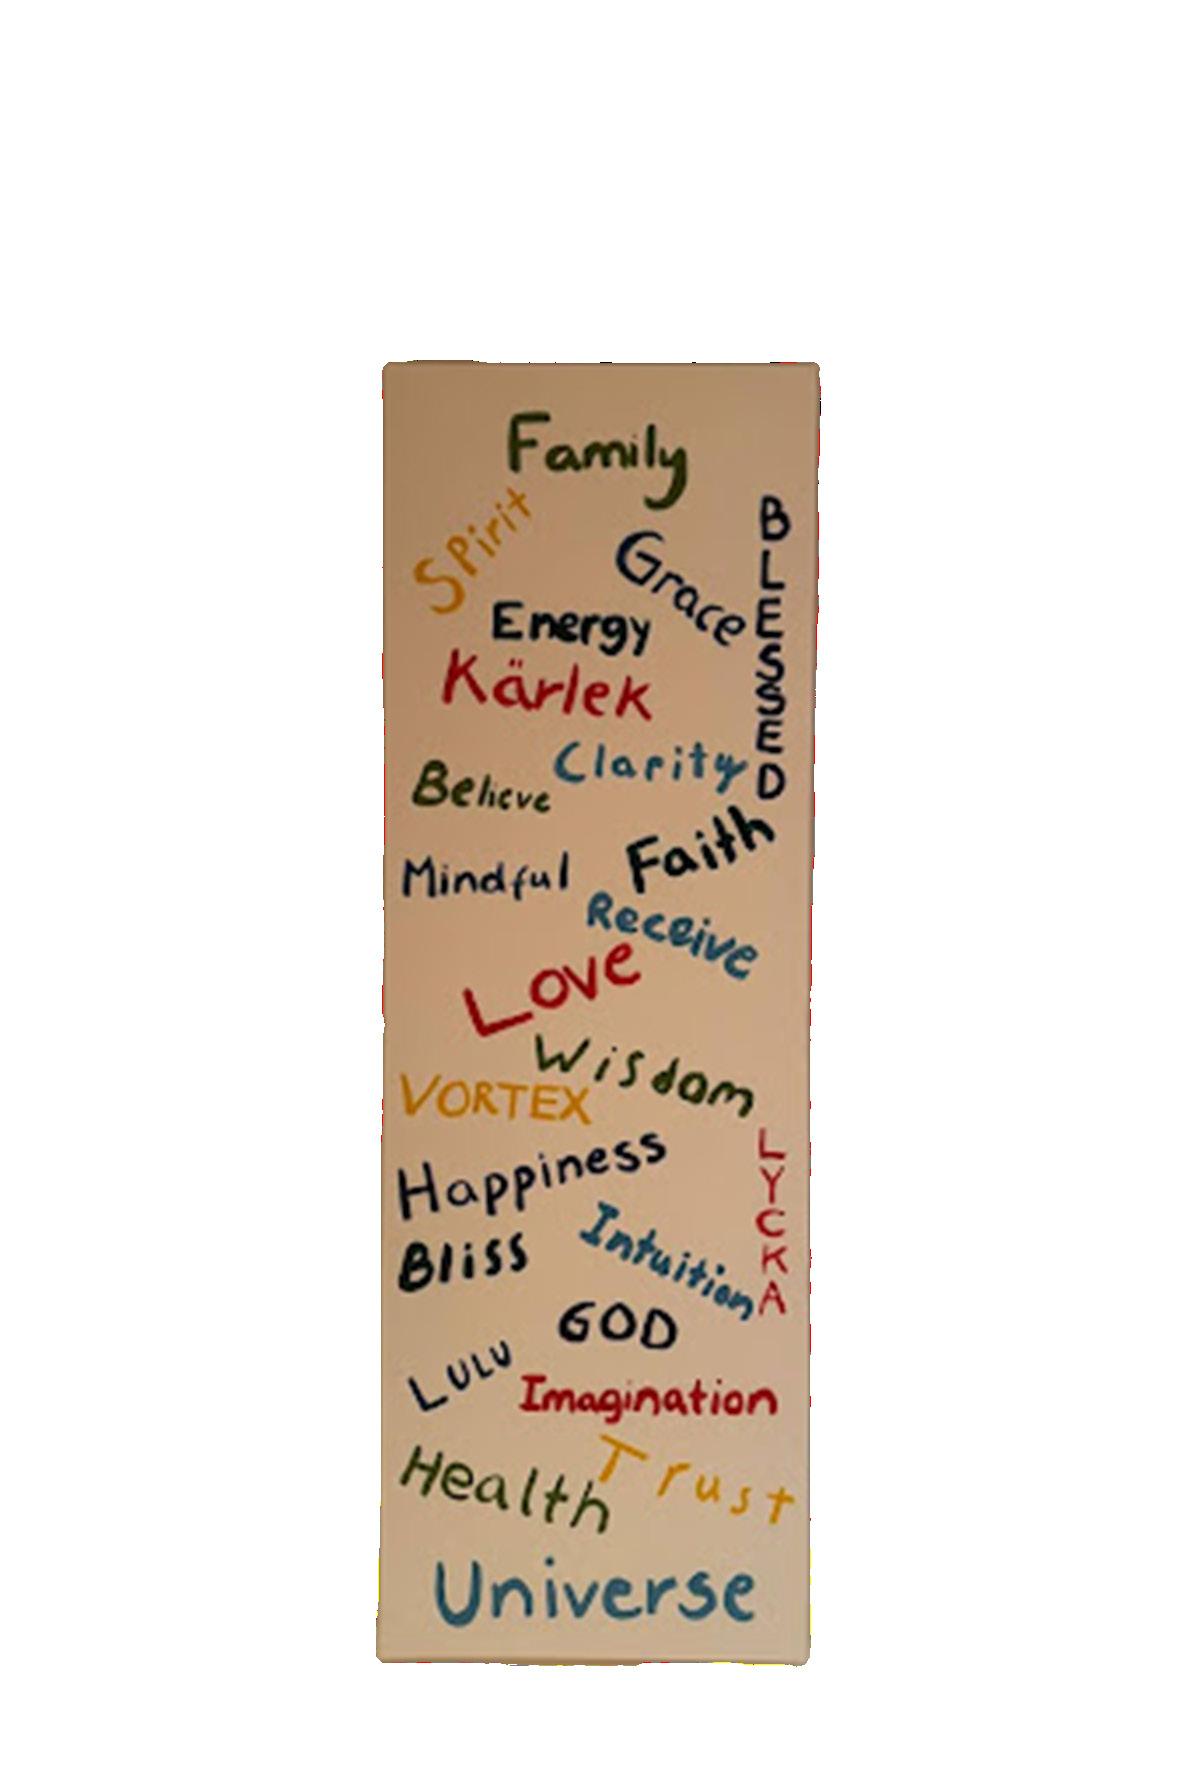 Family
Spirit
BLESSED
Grace
Energy
Kärlek
Clarity
Believe
Faith
Mindful
Receive
Love
Wisdom
VORTEX
LYCKA
Happiness
Intuition
Bliss
GOD
LULU
Imagination
Trust
Health
Universe